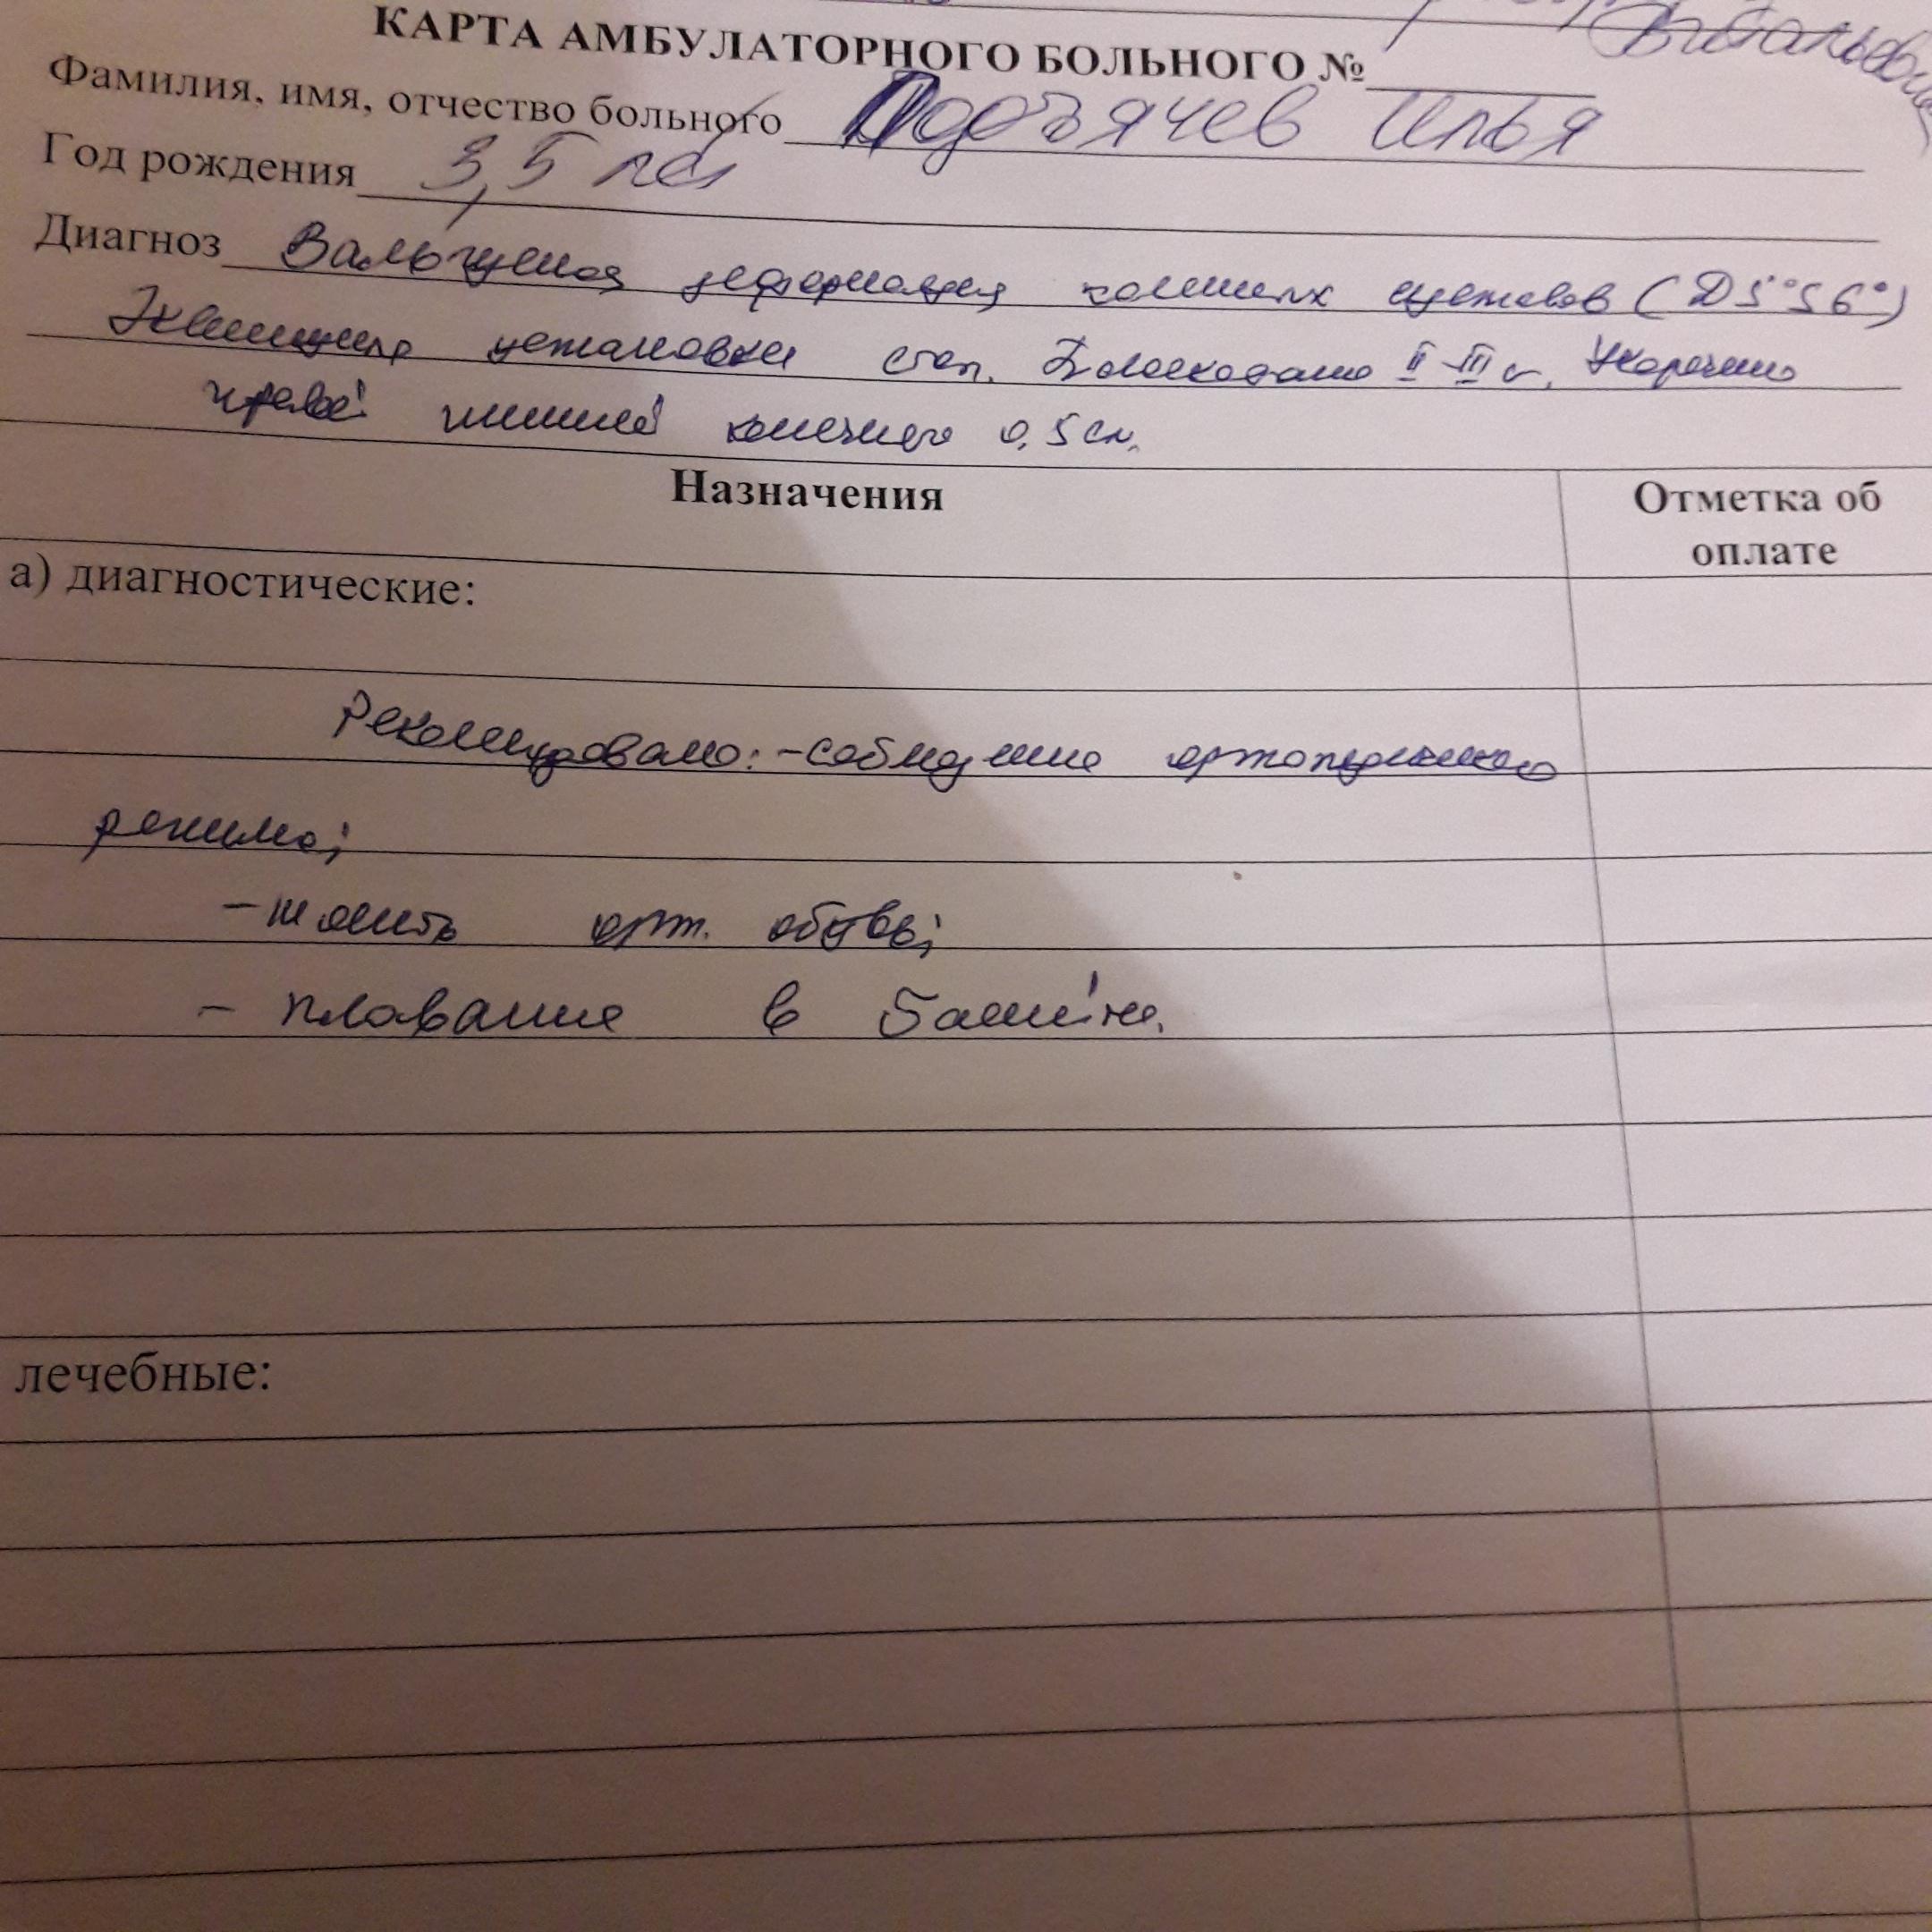 КАРТА АМБУЛАТОРНОГО БОЛЬНОГО №
Фамилия, имя, отчество больного Подъячев Илья Витальевич
Год рождения 3,5 лет
Диагноз Вальгусная деформация коленных суставов (D5°S6°)
Эквинусная установка стоп. Плоскостопие II-III ст. Укорочение
правой нижней конечности 0,5 см.
Назначения
Отметка об оплате
а) диагностические:
Рекомендовано: - соблюдение ортопедического
режима;
- носить орт. обувь;
- плавание в бассейне.
лечебные: